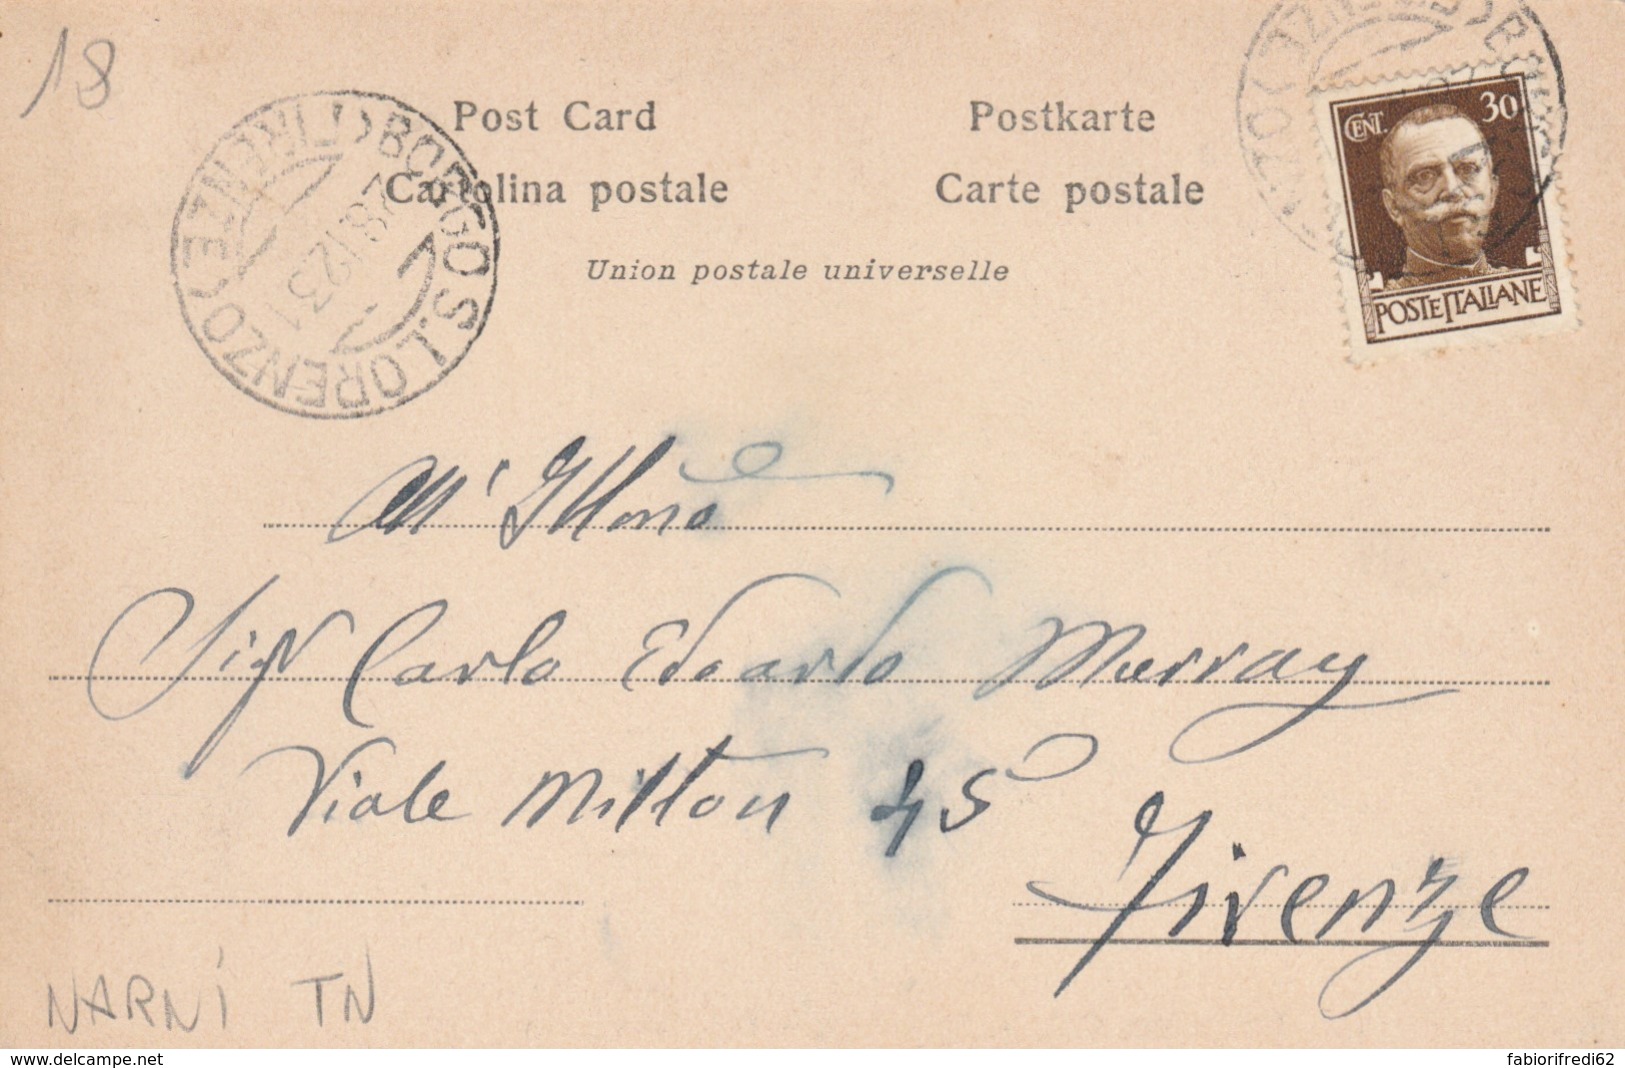 18
Post Card
Postkarte
Cartolina postale
Carte postale
Union postale universelle
BORGO S. LORENZO (FIRENZE)
28.12.31
CENT. 30
POSTE ITALIANE
All' Illmo
Sigr Carlo Edoardo Murray
Viale Milton 45
Firenze
NARNÍ TN
www.delcampe.net
fabiorifredi62